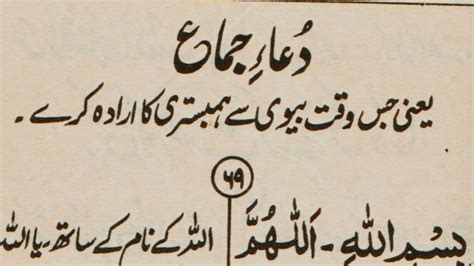 دُعاءِ جماع
یعنی جس وقت بیوی سے ہمبستری کا ارادہ کرے۔
۶۹
بِسْمِ اللہِ - اَللّٰهُمَّ
اللہ کے نام کے ساتھ - یا اللہ